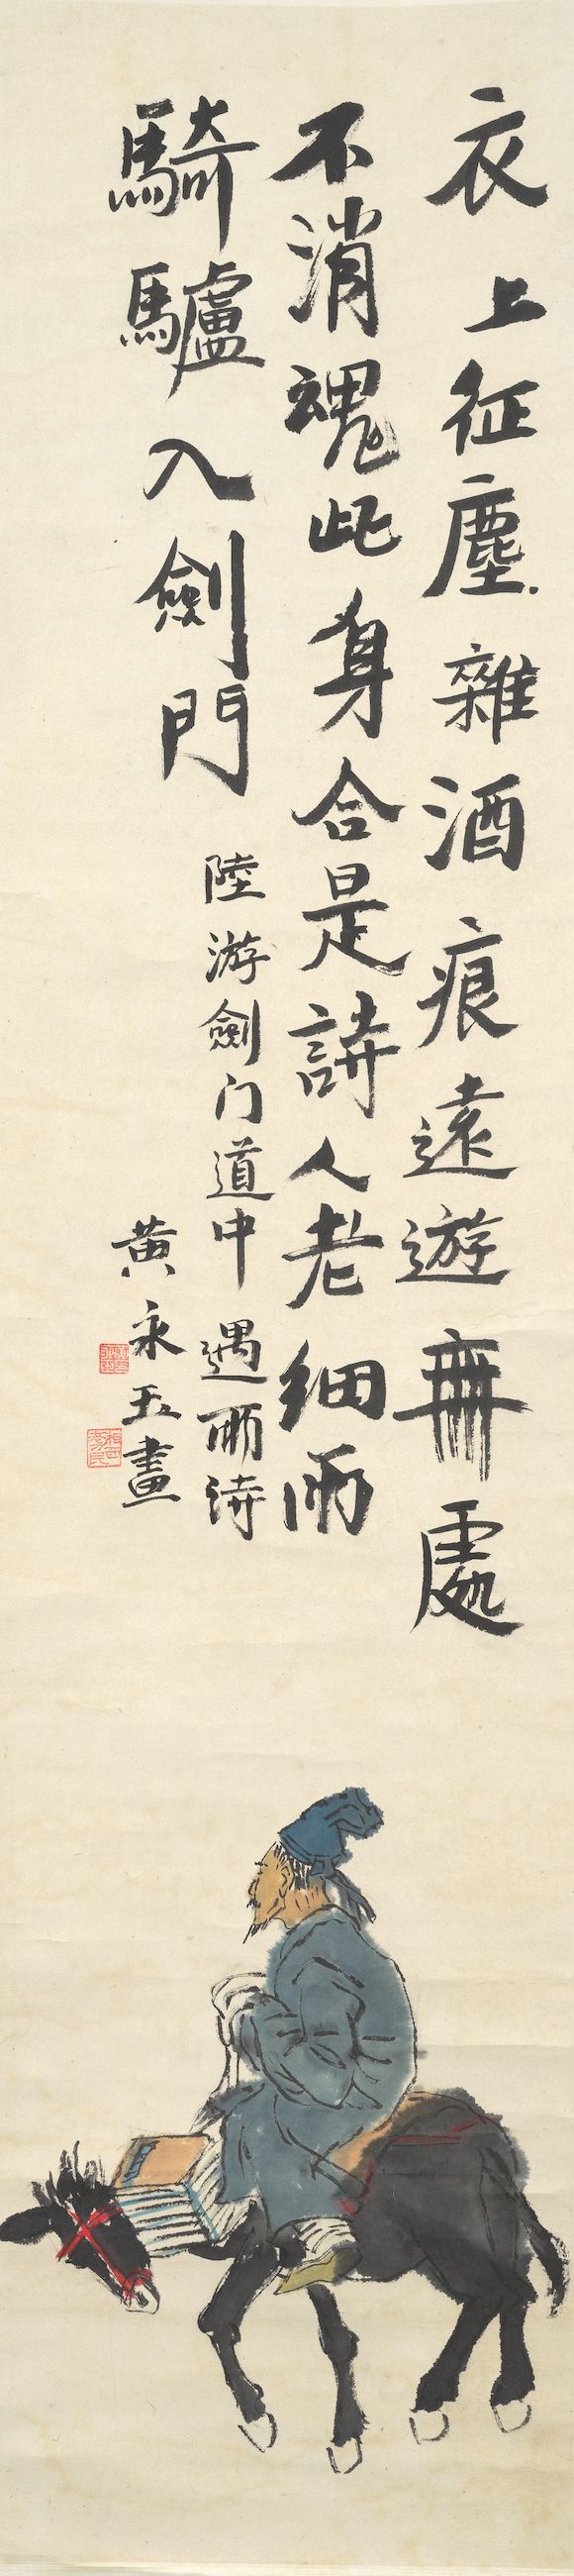 衣上征塵雜酒痕遠遊無處
不消魂此身合是詩人老细雨
騎驢入劍門
陸游劍门道中遇雨詩
黄永玉畫